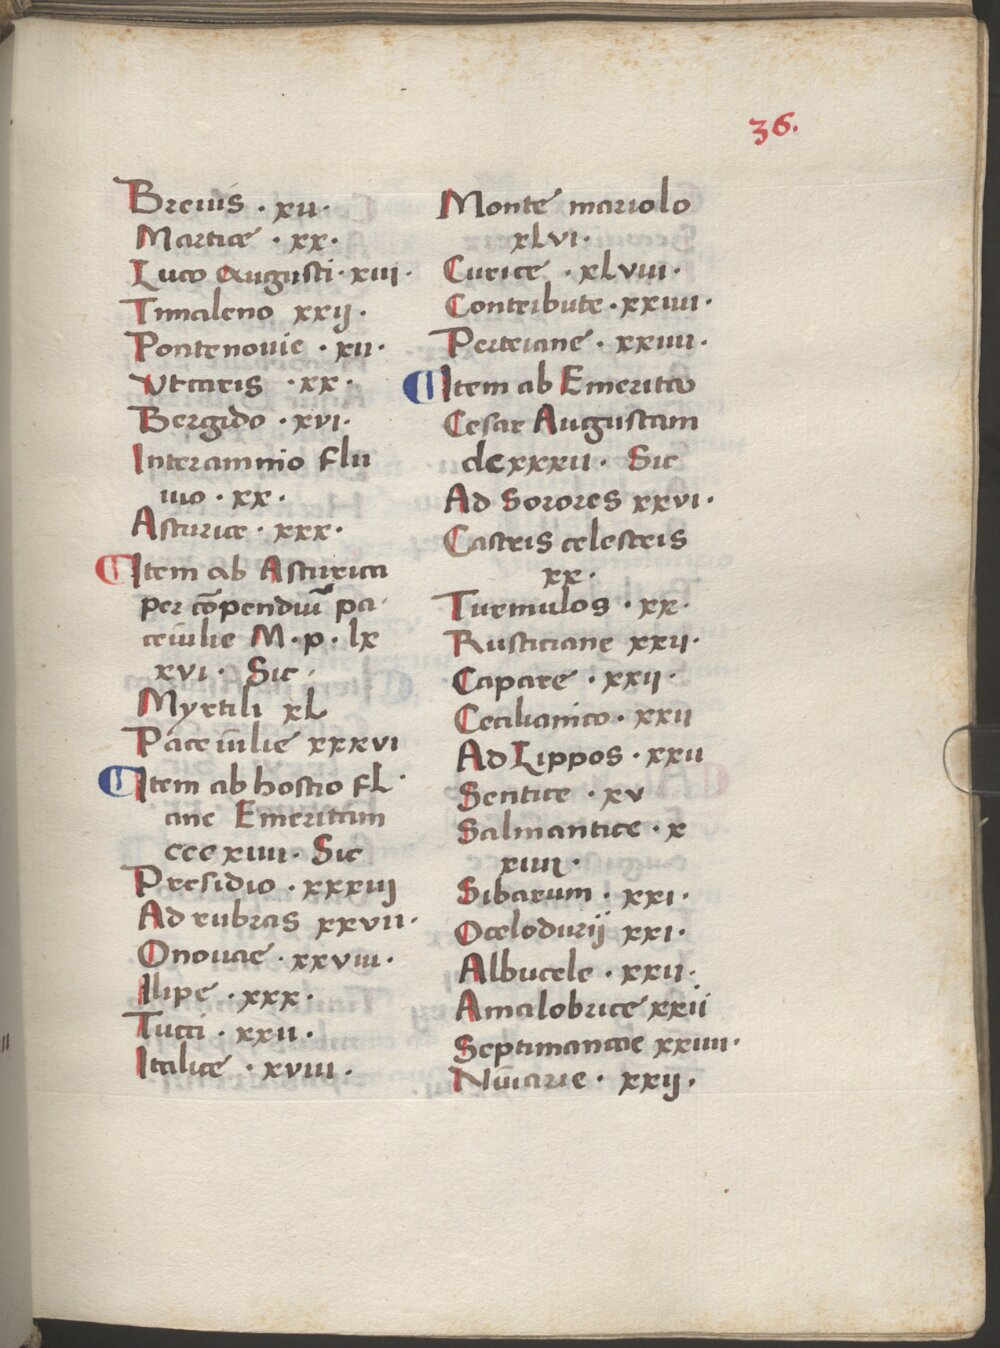 36.
Breuis · xii ·
Martiae · xx ·
Luco Augusti · xiii ·
Timaleno xxij ·
Pontenouie · xii ·
Vttaris · xx ·
Bergido · xvi ·
Interamnio flu
uio · xx ·
Asturice · xxx ·
Item ab Asturica
per cōpendiū pa
ceiulie M · p · lx
xvi · Sic ·
Myrtili xL
Paceiulie xxxvi
Item ab hostio fL·
ane Emeritam
cccxiiii · Sic
Presidio · xxxiij
Ad rubras xxvii ·
Onouae · xxviii ·
Ilipe · xxx ·
Tucci · xxii ·
Italice · xviii ·
Monte mariolo
xLvi ·
Curice · xLviii ·
Contribute · xxiiii ·
Perceiane · xxiiii ·
Item ab Emerita
Cesar Augustam
dcxxxii · Sic
Ad Sorores xxvi ·
Castris celestris
xx ·
Turmulos · xx ·
Rusticiane xxii ·
Capare · xxii ·
Cecilianico · xxii
Ad Lippos · xxii
Sentice · xv
Salmantice · x
xiiii ·
Sibarum · xxi ·
Ocelodurij xxi ·
Albucele · xxii ·
Amalobrice xxii
Septimancae xxiiii ·
Niuiarie · xxij ·